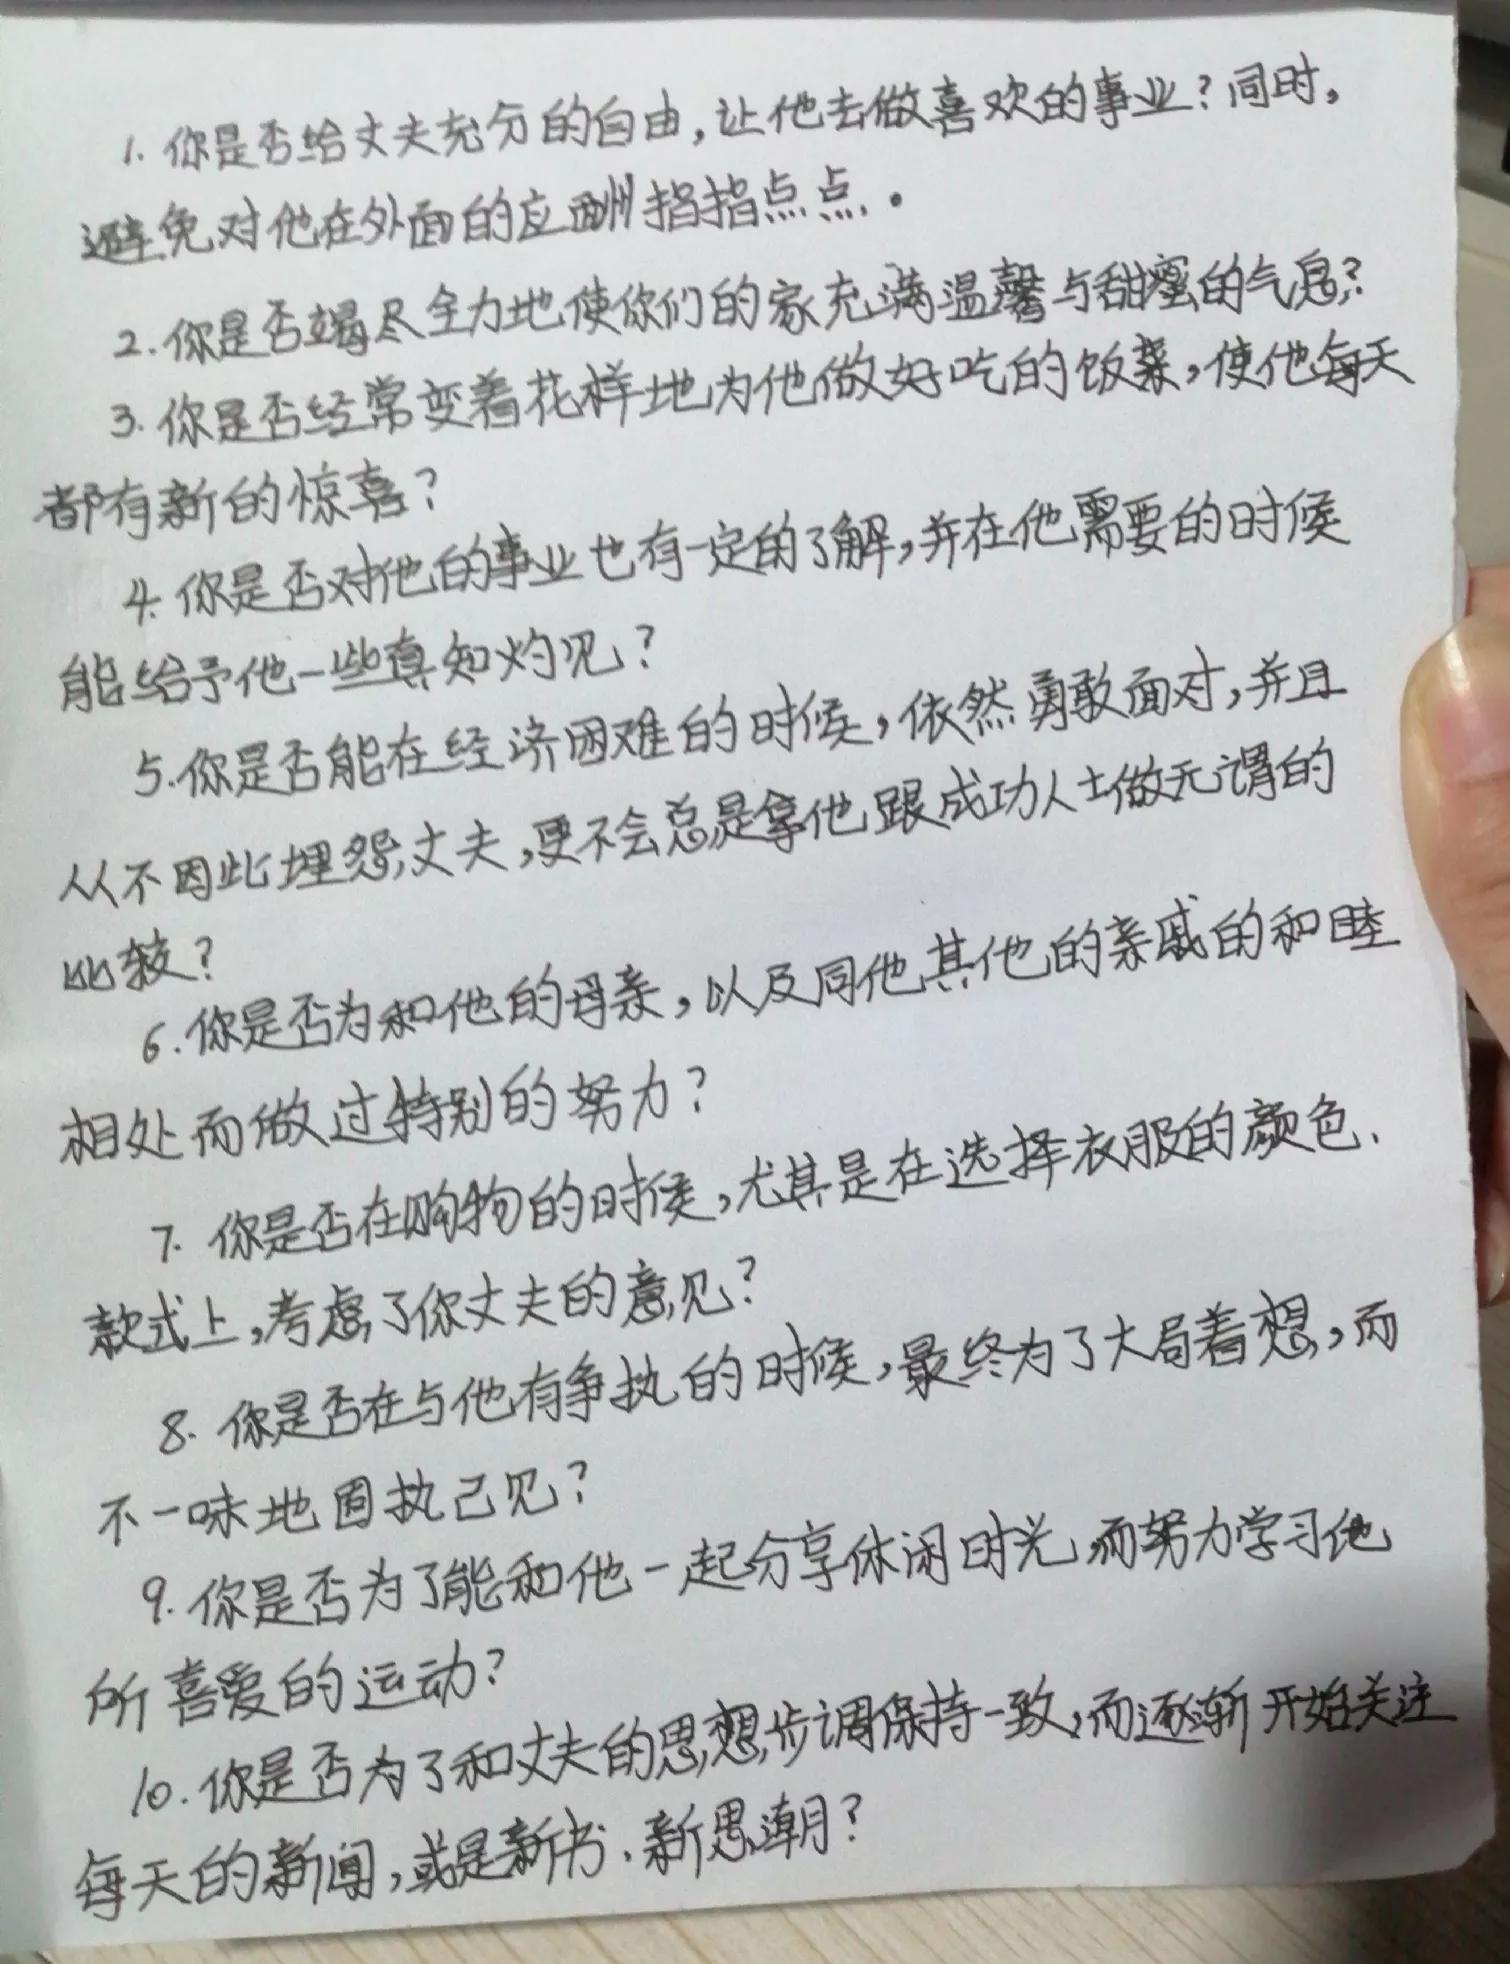 1. 你是否给丈夫充分的自由,让他去做喜欢的事业?同时,
避免对他在外面的应酬指指点点。
2. 你是否竭尽全力地使你们的家充满温馨与甜蜜的气息?
3. 你是否经常变着花样地为他做好吃的饭菜,使他每天
都有新的惊喜?
4. 你是否对他的事业也有一定的了解,并在他需要的时候
能给予他一些真知灼见?
5. 你是否能在经济困难的时候,依然勇敢面对,并且
从不因此埋怨丈夫,更不会总是拿他跟成功人士做无谓的
比较?
6. 你是否为和他的母亲,以及同他其他的亲戚的和睦
相处而做过特别的努力?
7. 你是否在购物的时候,尤其是在选择衣服的颜色、
款式上,考虑了你丈夫的意见?
8. 你是否在与他有争执的时候,最终为了大局着想,而
不一味地固执己见?
9. 你是否为了能和他一起分享休闲时光,而努力学习他
所喜爱的运动?
10. 你是否为了和丈夫的思想步调保持一致,而逐渐开始关注
每天的新闻,或是新书、新思潮?